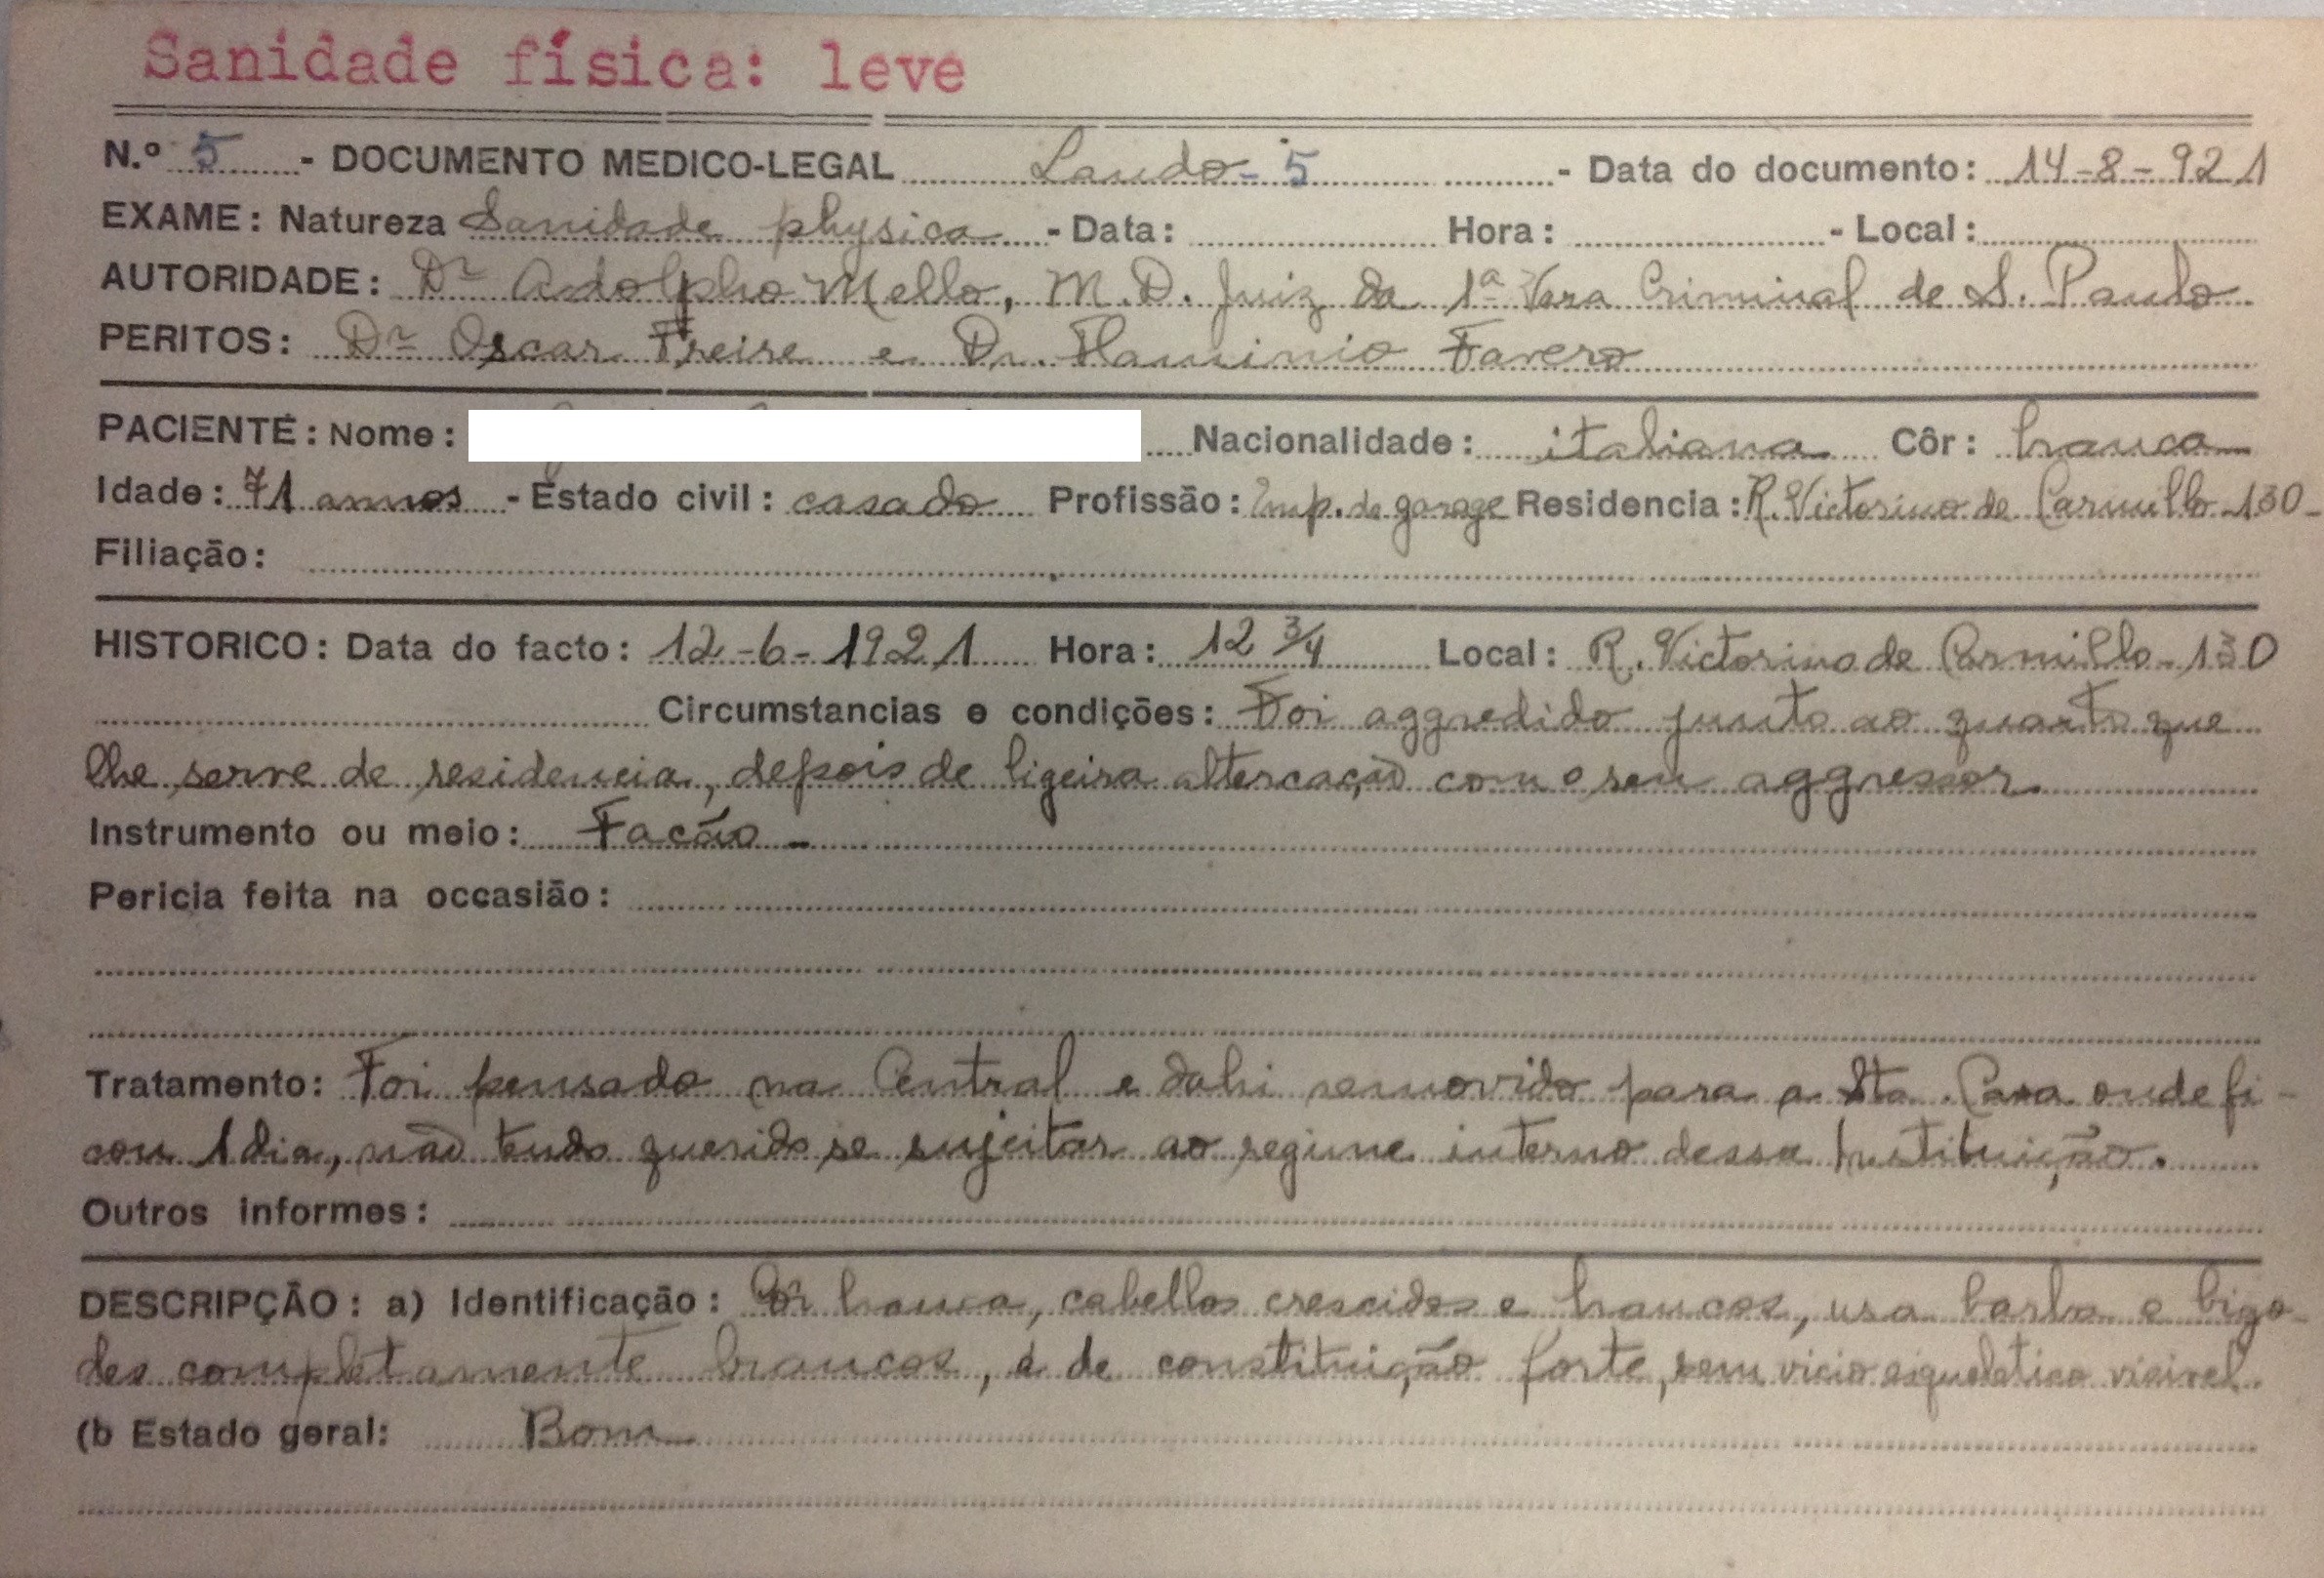 Sanidade física: leve
N.º 5 - DOCUMENTO MEDICO-LEGAL Laudo - 5 - Data do documento: 14-8-921
EXAME: Natureza Sanidade physica - Data: Hora: - Local:
AUTORIDADE: Dr Adolpho Mello, M.D. Juiz da 1ª Vara Criminal de S. Paulo
PERITOS: Dr Oscar Freire e Dr. Flaminio Favero
PACIENTE: Nome: Nacionalidade: italiana Côr: branca
Idade: 71 annos - Estado civil: casado Profissão: Emp. de garage Residencia: R. Victorino de Carmillo - 130 -
Filiação:
HISTORICO: Data do facto: 12-6-1921 Hora: 12 3/4 Local: R. Victorino de Carmillo - 130
Circumstancias e condições: Foi aggredido junto ao quarto que
lhe serve de residencia, depois de ligeira altercação com o seu aggressor.
Instrumento ou meio: Facão -
Pericia feita na occasião:
Tratamento: Foi pensado na Central e dahi removido para a Sta. Casa onde fi-
cou 1 dia, não tendo querido se sujeitar ao regime interno dessa Instituição.
Outros informes:
DESCRIPÇÃO: a) Identificação: Côr branca, cabellos crescidos e brancos, usa barba e bigo-
des completamente brancos, é de constituição forte, sem vicio esqueletico visivel.
(b Estado geral: Bom